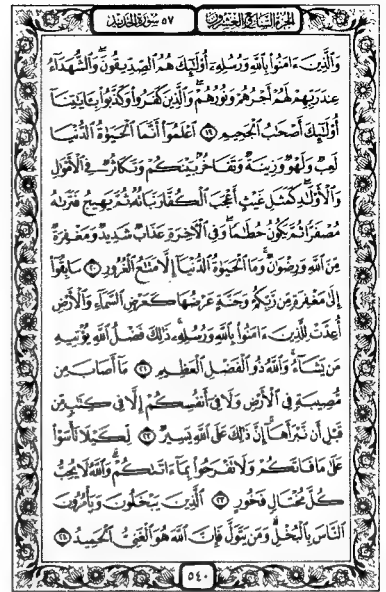 الجزء السابع والعشرون ٥٧ سورة الحديد
وَالَّذِينَ ءَامَنُوا بِاللَّهِ وَرُسُلِهِۦٓ أُولَٰٓئِكَ هُمُ الصِّدِّيقُونَ ۖ وَالشُّهَدَآءُ
عِندَ رَبِّهِمْ لَهُمْ أَجْرُهُمْ وَنُورُهُمْ ۖ وَالَّذِينَ كَفَرُوا وَكَذَّبُوا بِـَٔايَٰتِنَآ
أُولَٰٓئِكَ أَصْحَٰبُ الْجَحِيمِ ١٩ اعْلَمُوٓا أَنَّمَا الْحَيَوٰةُ الدُّنْيَا
لَعِبٌ وَلَهْوٌ وَزِينَةٌ وَتَفَاخُرٌۢ بَيْنَكُمْ وَتَكَاثُرٌ فِي الْأَمْوَٰلِ
وَالْأَوْلَٰدِ ۖ كَمَثَلِ غَيْثٍ أَعْجَبَ الْكُفَّارَ نَبَاتُهُۥ ثُمَّ يَهِيجُ فَتَرَىٰهُ
مُصْفَرًّا ثُمَّ يَكُونُ حُطَٰمًا ۖ وَفِي الْـَٔاخِرَةِ عَذَابٌ شَدِيدٌ وَمَغْفِرَةٌ
مِّنَ اللَّهِ وَرِضْوَٰنٌ ۚ وَمَا الْحَيَوٰةُ الدُّنْيَآ إِلَّا مَتَٰعُ الْغُرُورِ ٢٠ سَابِقُوٓا
إِلَىٰ مَغْفِرَةٍ مِّن رَّبِّكُمْ وَجَنَّةٍ عَرْضُهَا كَعَرْضِ السَّمَآءِ وَالْأَرْضِ
أُعِدَّتْ لِلَّذِينَ ءَامَنُوا بِاللَّهِ وَرُسُلِهِۦ ۚ ذَٰلِكَ فَضْلُ اللَّهِ يُؤْتِيهِ
مَن يَشَآءُ ۚ وَاللَّهُ ذُو الْفَضْلِ الْعَظِيمِ ٢١ مَآ أَصَابَ مِن
مُّصِيبَةٍ فِي الْأَرْضِ وَلَا فِيٓ أَنفُسِكُمْ إِلَّا فِي كِتَٰبٍ مِّن
قَبْلِ أَن نَّبْرَأَهَآ ۚ إِنَّ ذَٰلِكَ عَلَى اللَّهِ يَسِيرٌ ٢٢ لِّكَيْلَا تَأْسَوْا
عَلَىٰ مَا فَاتَكُمْ وَلَا تَفْرَحُوا بِمَآ ءَاتَىٰكُمْ ۗ وَاللَّهُ لَا يُحِبُّ
كُلَّ مُخْتَالٍ فَخُورٍ ٢٣ الَّذِينَ يَبْخَلُونَ وَيَأْمُرُونَ
النَّاسَ بِالْبُخْلِ ۗ وَمَن يَتَوَلَّ فَإِنَّ اللَّهَ هُوَ الْغَنِيُّ الْحَمِيدُ ٢٤
٥٤٠